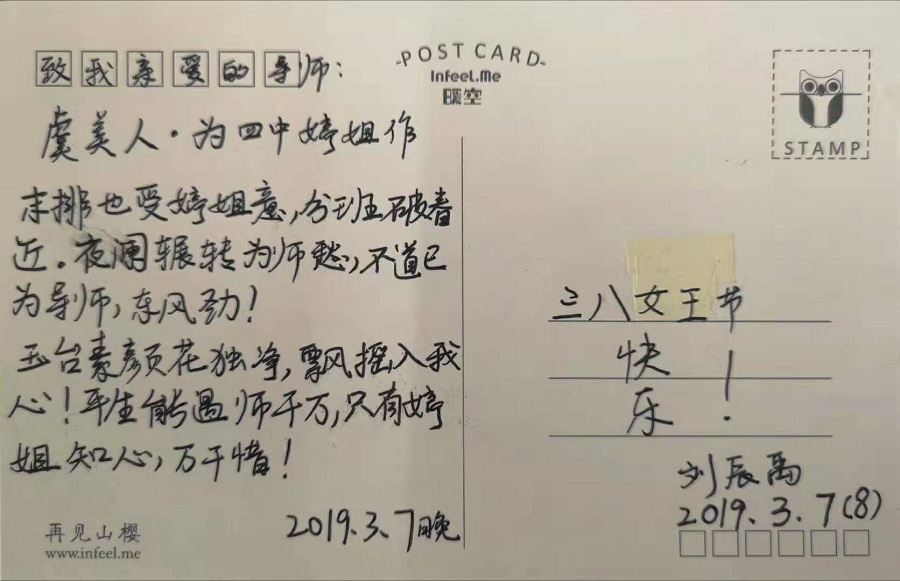 致我亲爱的导师:
-POST CARD-
Infeel.Me
STAMP
虞美人·为四中婷姐作
末排也受婷姐意,分班在破春
近。夜阑辗转为师愁,不道已
为导师,东风劲!
玉台素颜花独净,飘风摇入我
心!平生能遇师千万,只有婷
姐知心,万千惜!
2019.3.7晚
再见山樱
www.infeel.me
三八女王节
快
乐!
刘辰禹
2019.3.7(8)